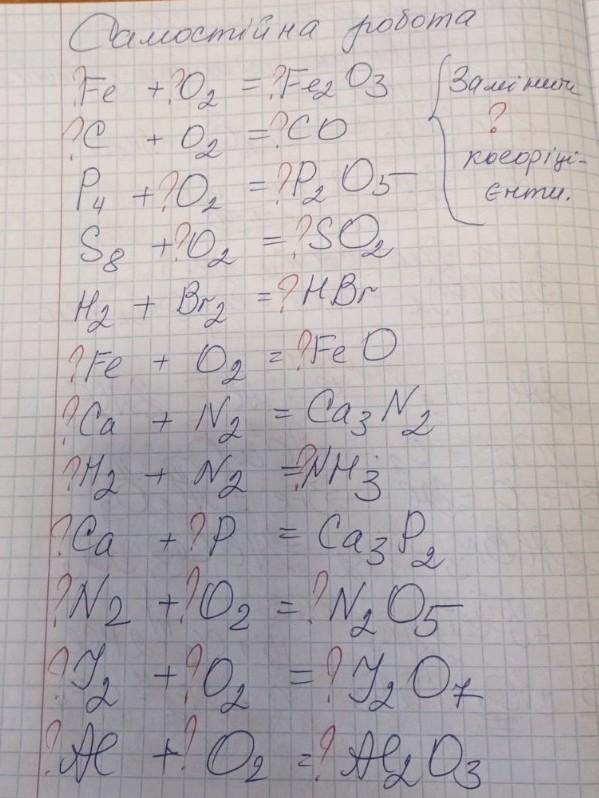 Самостійна робота
?Fe + ?O₂ = ?Fe₂O₃
?C + O₂ = ?CO
P₄ + ?O₂ = ?P₂O₅
S₈ + ?O₂ = ?SO₂
H₂ + Br₂ = ?HBr
?Fe + O₂ = ?FeO
?Ca + N₂ = Ca₃N₂
?H₂ + N₂ = ?NH₃
?Ca + ?P = Ca₃P₂
?N₂ + ?O₂ = ?N₂O₅
?J₂ + ?O₂ = ?J₂O₇
?Al + ?O₂ = ?Al₂O₃
Замінити
?
коефіці-
єнти.